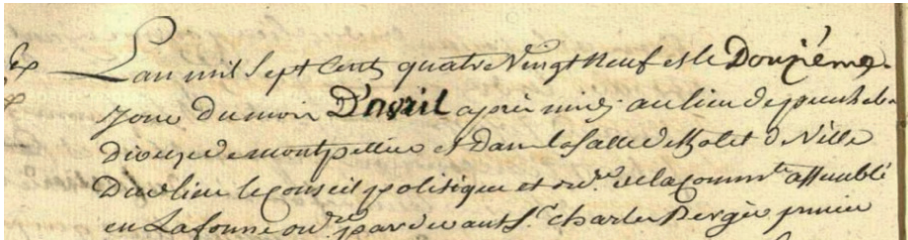 L'an mil Sept Cent quatre Vingt Neuf et le Douzième
Jour du mois D'avril après midy au lieu de
diocèze de montpellier et dans la Salle de hotel de Ville
Dud. lieu le Conseil politique et ord.re de la Comm.té assemblé
en La forme ord.re par devant S.r Charles Bergé premier